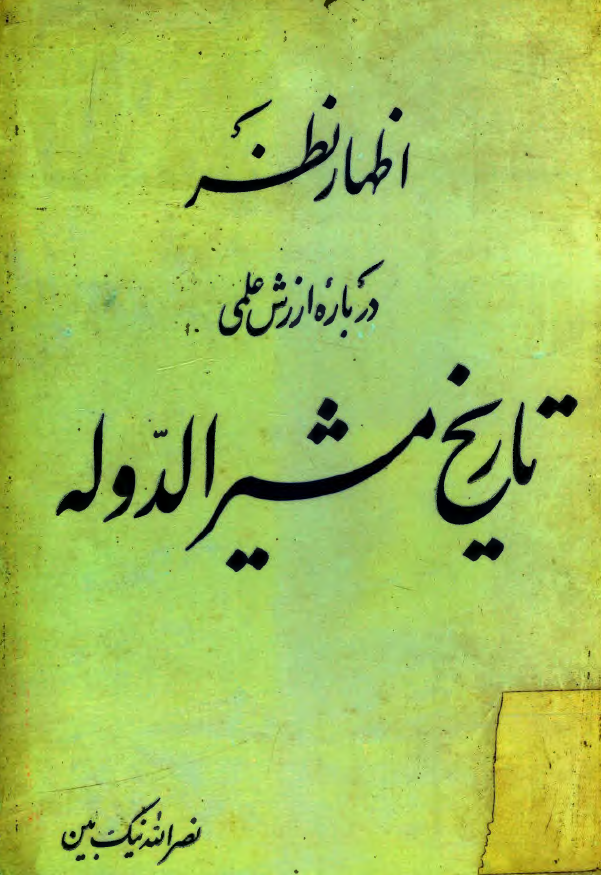 اظهار نظر
دربارهٔ ارزش علمی
تاریخ مشیرالدّوله
نصرالله نیک‌بین